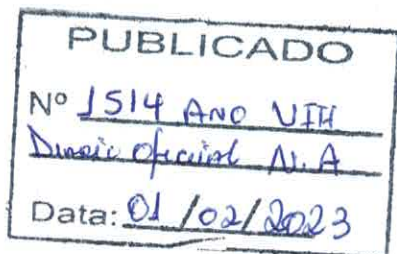 PUBLICADO
Nº 1514 ANO VIII
Diário Oficial N.A
Data: 01/02/2023